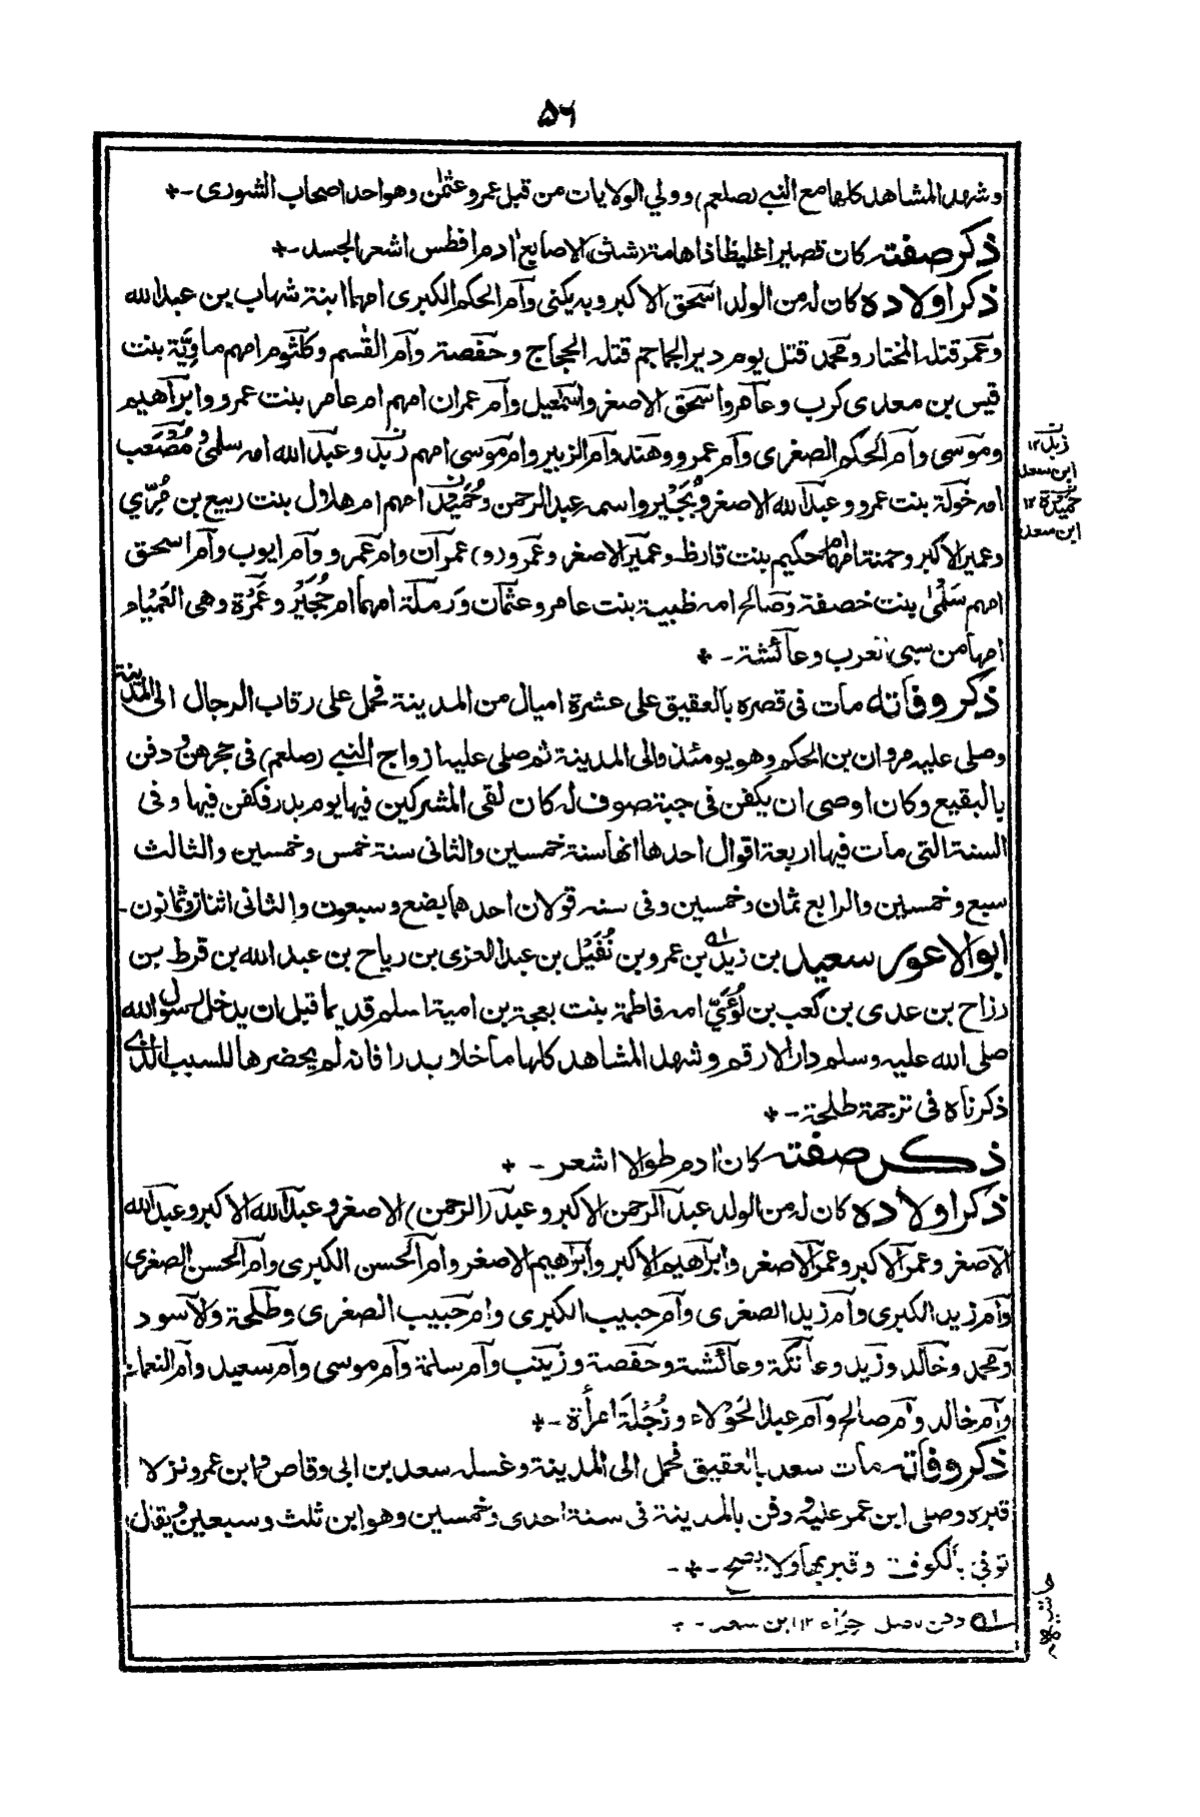 ٥٦
وشهد المشاهد كلها مع النبي (صلعم) وولي الولايات من قبل عمر وعثمٰن وهو احد اصحاب الشورى -٭
ذكر صفته كان قصيرا غليظا ذا هامة شثن الاصابع اٰدم افطس اشعر الجسد -٭
ذكر اولاده كان له من الولد اسحق الاكبر وبه يكنى وام الحكم الكبرى امهما ابنة شهاب بن عبد الله
وعمر قتله المختار ومحمد قتل يوم دير الجماجم قتله الحجاج وحفصة وام القٰسم وكلثوم امهم ماوِيّة بنت
قيس بن معدى كرب وعامر واسحق الاصغر واسمٰعيل وام عمران امهم ام عامر بنت عمرو وابراهيم
وموسى وام الحكم الصغرى وام عمرو وهند وام الزبير وام موسى امهم زبد وعبد الله امه سلمى ومُصْعَب
امه خولة بنت عمرو وعبد الله الاصغر وبُجَيْر واسمه عبد الرحمن وحُمَيْد امهم ام هلال بنت ربيع بن مُرّي
وعمير الاكبر وحمنة امهما ام حكيم بنت قارظ وعمير الاصغر وعمرو (و) عمران وام عمرو وام ايوب وام اسحق
امهم سَلْمٰى بنت خصفة وصالح امه ظبية بنت عامر وعثمان ورملة امهما ام حُجَيْر وعَمْرَة وهى العَمْياء
امها من سبى العرب وعائشة -٭
ذكر وفاته مات فى قصره بالعقيق على عشرة اميال من المدينة فحمل على رقاب الرجال الى المدينة
وصلى عليه مروان بن الحكم وهو يومئذ والى المدينة ثم صلى عليه ازواج النبي (صلعم) فى حجرهن ودفن
بالبقيع وكان اوصى ان يكفن فى جبة صوف له كان لقى المشركين فيها يوم بدر فكفن فيها وفى
السنة التى مات فيها اربعة اقوال احدها انها سنة خمسين والثانى سنة خمس وخمسين والثالث
سبع وخمسين والرابع ثمان وخمسين وفى سنه قولان احدهما بضع وسبعون والثانى اثنان وثمانون -
ابو الاعور سعيد بن زيد بن عمرو بن نُفَيْل بن عبد العزى بن رياح بن عبد الله بن قرط بن
رزاح بن عدى بن كعب بن لُؤَيّ امه فاطمة بنت بعجة بن امية اسلم قديما قبل ان يدخل رسول الله
صلى الله عليه وسلم دار الارقم وشهد المشاهد كلها ما خلا بدرا فانه لم يحضرها للسبب الذي
ذكرناه فى ترجمة طلحة -٭
ذكر صفته كان اٰدم طوالا اشعر - ٭
ذكر اولاده كان له من الولد عبد الرحمن الاكبر وعبد (الرحمن) الاصغر وعبد الله الاكبر وعبد الله
الاصغر وعمر الاكبر وعمر الاصغر وابراهيم الاكبر وابراهيم الاصغر وام الحسن الكبرى وام الحسن الصغرى
وام زيد الكبرى وام زيد الصغرى وام حبيب الكبرى وام حبيب الصغرى وطلحة والاسود
ومحمد وخالد وزيد وعاتكة وعائشة وحفصة وزينب وام سلمة وام موسى وام سعيد وام النعمان
وام خالد وام صالح وام عبد الحَوْلاء وزُجْلَة امرأة -٭
ذكر وفاته مات سعد بالعقيق فحمل الى المدينة وغسله سعد بن ابى وقاص وابن عمر ونزلا
قبره وصلى ابن عمر عليه ودفن بالمدينة فى سنة احدى وخمسين وهو ابن ثلث وسبعين ويقال
توفى بالكوفة وقبر بها ولا يصح -٭-
زبد ١٢
ابن سعد
حميدة ١٢
ابن سعد
حاشيه